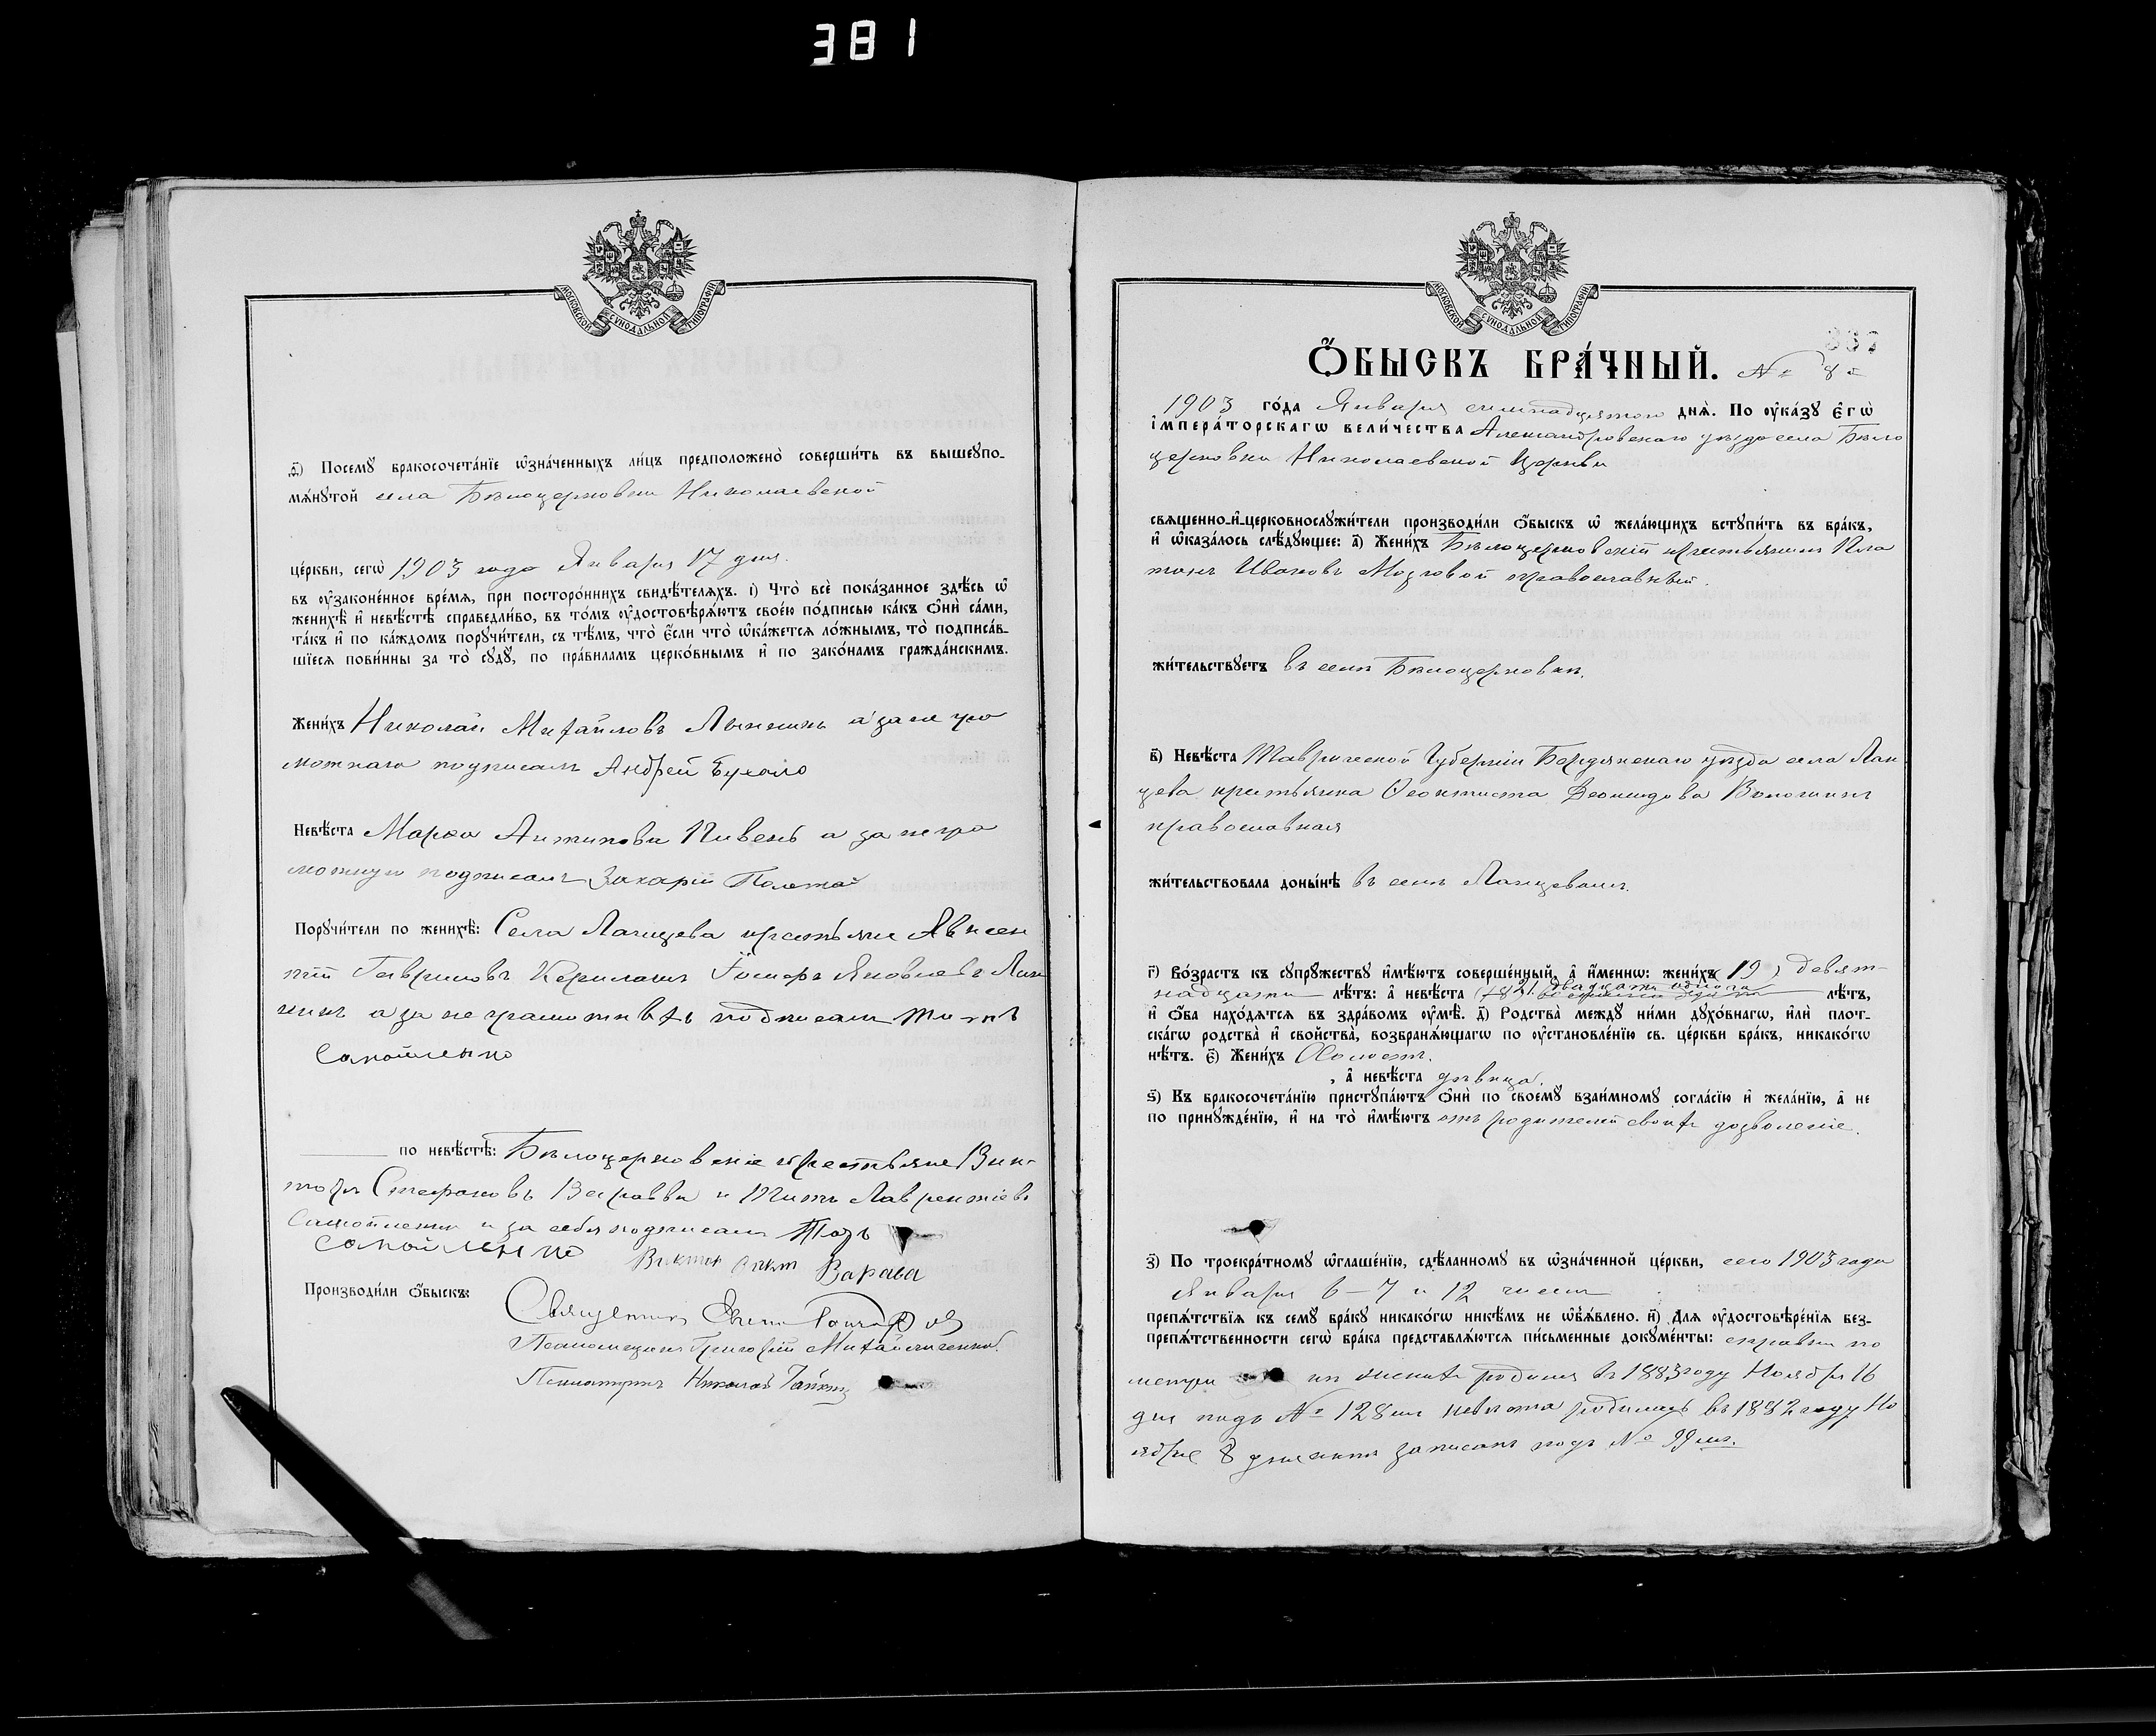 381
МОСКОВСКОЙ СѴНОДАЛЬНОЙ ТИПОГРАФІИ
Посемꙋ̀ бракосочета́нїе ѡ҆зна́ченныхъ ли́цъ предположено̀ соверши́ть въ вышеꙋпо-
мѧ́нꙋтой села Бѣлоцерковки Николаевской
це́ркви, сегѡ̀ 1903 года Января 17 дня.
въ ᲂу҆законе́нное вре́мѧ, при посторо́ннихъ свидѣ́телѧхъ. і) Что̀ всѐ пока́занное здѣ́сь ѡ҆
женихѣ̀ и҆ невѣ́стѣ справедли́во, въ то́мъ ᲂу҆достовѣрѧ́ютъ свое́ю по́дписью ка́къ ѻ҆нѝ са́ми,
та́къ и҆ по ка́ждомъ порꙋчи́тели, съ тѣ́мъ, что̀ є҆́сли что̀ ѡ҆ка́жетсѧ ло́жнымъ, то̀ подписа́в-
шїесѧ пови́нны за то̀ сꙋдꙋ̀, по пра́виламъ церко́внымъ и҆ по зако́намъ гражда́нскимъ.
Жени́хъ Николай Михайловъ а за негра
мотнаго подписалъ Андрей
Невѣ́ста Марѳа Антипова Пивень а за негра
мотную подписалъ Захарій
Порꙋчи́тели по женихѣ̀: Села Ланцева крестьяне
Гавриловъ Яковлевъ
а за неграмотныхъ подписалъ Титъ
Самойленко
по невѣ́стѣ: Бѣлоцерковскіе крестьяне Вик-
торъ Стефановъ Варавва и Титъ Лаврентіевъ
Самойленко и за себя подписали Титъ
Самойленко Викторъ Варава
Производи́ли ѻ҆́быскъ: Священникъ
Псаломщикъ Григорій Михайличенко
Николай
МОСКОВСКОЙ СѴНОДАЛЬНОЙ ТИПОГРАФІИ
Ѻ҆́БЫСКЪ БРА́ЧНЫЙ. № 8й
1903 го́да Января семнадцатаго днѧ̀. По ᲂу҆ка́зꙋ є҆гѡ̀
і҆мпера́торскагѡ вели́чества Александровскаго уѣзда села Бѣло
церковки Николаевской Церкви
свѧщенно-и҆-церковнослꙋжи́тели производи́ли ѻ҆́быскъ ѡ҆ жела́ющихъ встꙋпи́ть въ бра́къ,
и҆ ѡ҆каза́лось слѣ́дꙋющее: а҃) Жени́хъ Бѣлоцерковскій крестьянинъ Пла
тонъ Ивановъ Мозговой православный.
жи́тельствꙋетъ въ селѣ Бѣлоцерковкѣ.
в҃) Невѣ́ста Таврической Губерніи Бердянскаго уѣзда села Лан
цева крестьянка Ѳеоктиста Леонидова
православная
жи́тельствовала доны́нѣ въ селѣ Ланцевомъ.
г҃) Во́зрастъ къ сꙋпрꙋ́жествꙋ и҆мѣ́ютъ соверше́нный, а҆ и҆́менно: жени́хъ (19) девят-
надцати лѣ́тъ: а҆ невѣ́ста 21 двадцати одного лѣ́тъ,
и҆ ѻ҆́ба нахо́дѧтсѧ въ здра́вомъ ᲂу҆мѣ̀. д҃) Родства̀ междꙋ̀ ни́ми дꙋхо́внагѡ, и҆лѝ плот-
ска́гѡ родства̀ и҆ сво́йства̀, возбранѧ́ющагѡ по ᲂу҆становле́нїю св. це́ркви бра́къ, никако́гѡ
нѣ́тъ. є҃) Жени́хъ Холостъ.
, а҆ невѣ́ста дѣвица.
ѕ҃) Къ бракосочета́нїю пристꙋпа́ютъ ѻ҆нѝ по своемꙋ̀ взаи́мномꙋ согла́сїю и҆ жела́нїю, а҆ не
по принꙋжде́нїю, и҆ на то̀ и҆мѣ́ютъ отъ родителей своихъ дозволеніе.
з҃) По троекра́тномꙋ ѡ҆глаше́нїю, сдѣ́ланномꙋ въ ѡ҆зна́ченной це́ркви, сего 1903 года
Января 6–7 и 12 чиселъ
препѧ́тствїѧ къ семꙋ̀ бра́кꙋ никако́гѡ никѣ́мъ не ѡ҆б̾ѧ́влено. и҃) Длѧ ᲂу҆достовѣре́нїѧ без-
препѧ́тственности сегѡ̀ бра́ка представлѧ́ютсѧ пи́сьменные докꙋме́нты: справка по
метри женихъ родился въ 1883 году Ноября 16
дня подъ № 128мъ невѣста родилась въ 1882 году Но
ября 8 дня записана подъ № 99мъ.